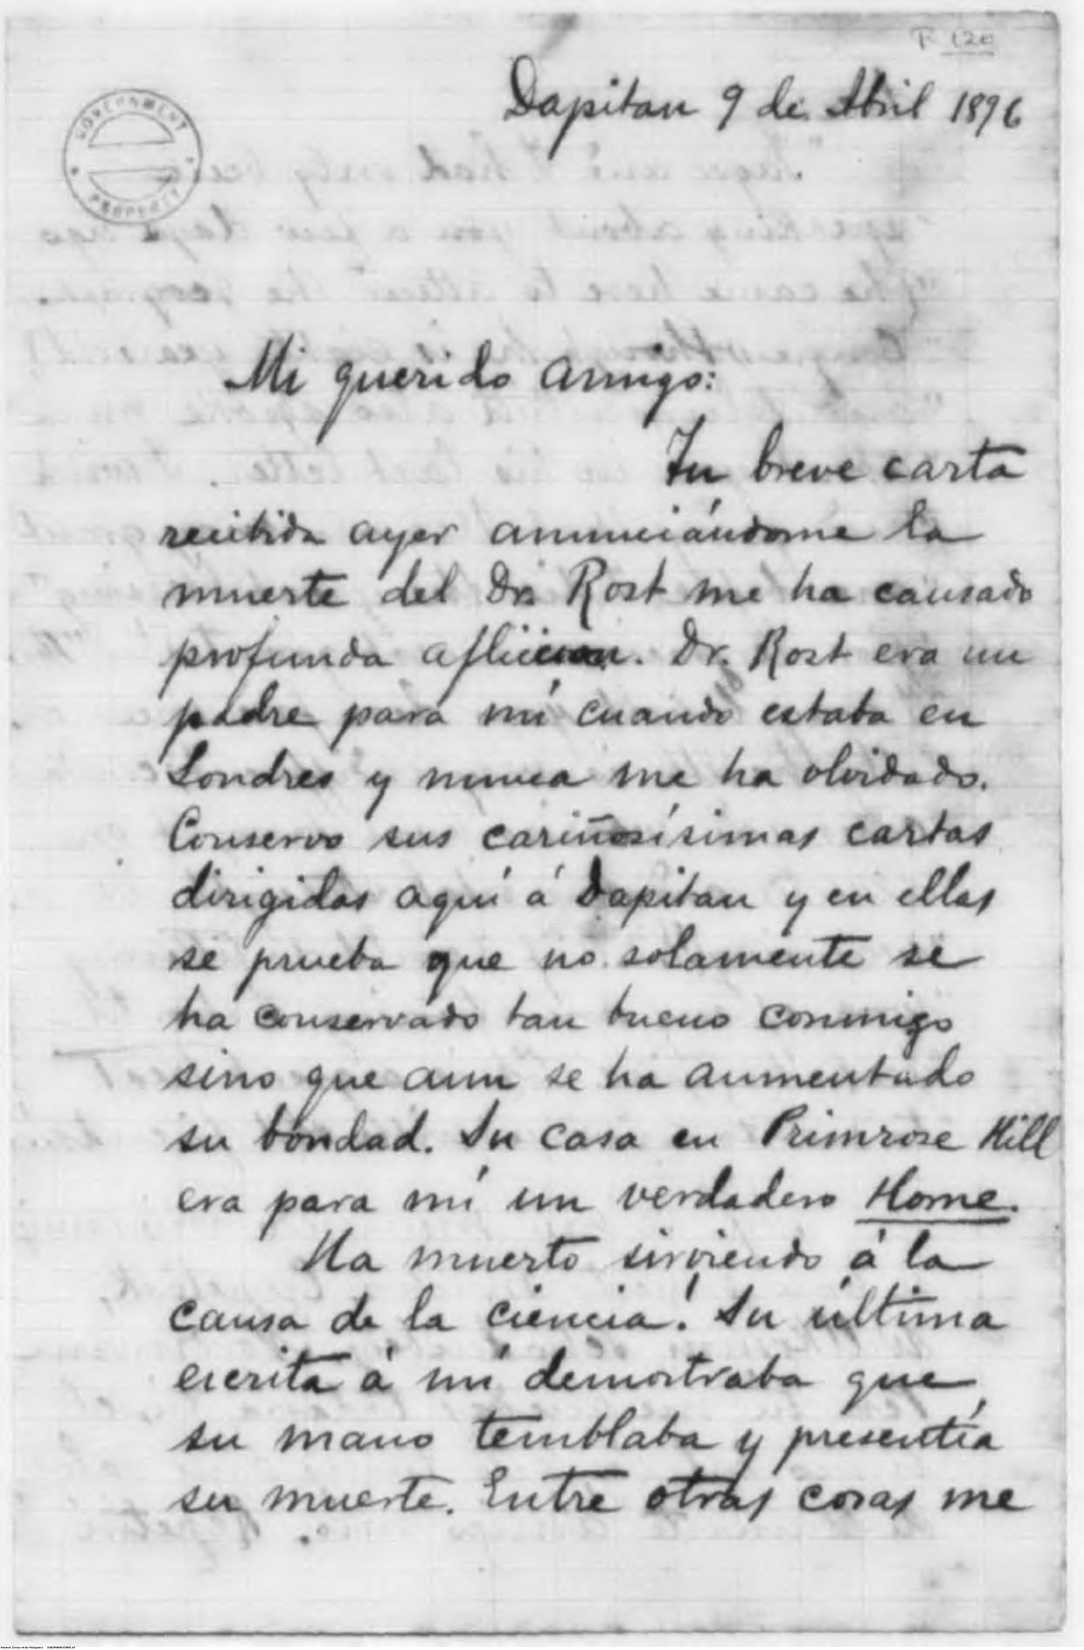 F 120
GOVERNMENT
PROPERTY
Dapitan 9 de Abril 1896
Mi querido amigo:
Tu breve carta
recibida ayer anunciándome la
muerte del Dr. Rost me ha causado
profunda aflicción. Dr. Rost era un
padre para mí cuando estaba en
Londres y nunca me ha olvidado.
Conservo sus cariñosísimas cartas
dirigidas aquí á Dapitan y en ellas
se prueba que no solamente se
ha conservado tan bueno conmigo
sino que aun se ha aumentado
su bondad. Su casa en Primrose Hill
era para mí un verdadero Home.
Ha muerto sirviendo á la
causa de la ciencia! Su última
escrita á mí demostraba que
su mano temblaba y presentía
su muerte. Entre otras cosas me